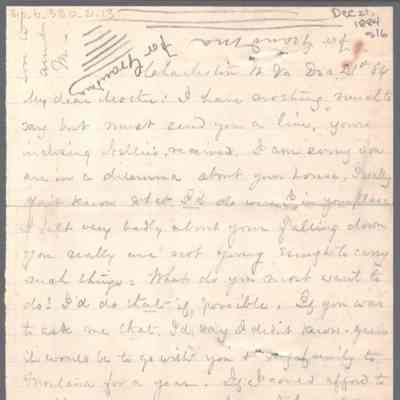 Dec 21,
1884
For Grandma
Charleston W Va Dec 21st 84
My dear Mother: I have nothing much to
say but must send you a line, yours
inclosing Nellie's, received. I am sorry you
are in a dilemma about your house. I really
don't know what I'd do were I in your place
I felt very badly about your falling down
you really are not young enough to carry
such things. What do you most want to
do? I'd do that if possible. If you was
to ask me that, I'd say I didn't know - guess
it would be to go with you & family to
Montana for a year. If I could afford to